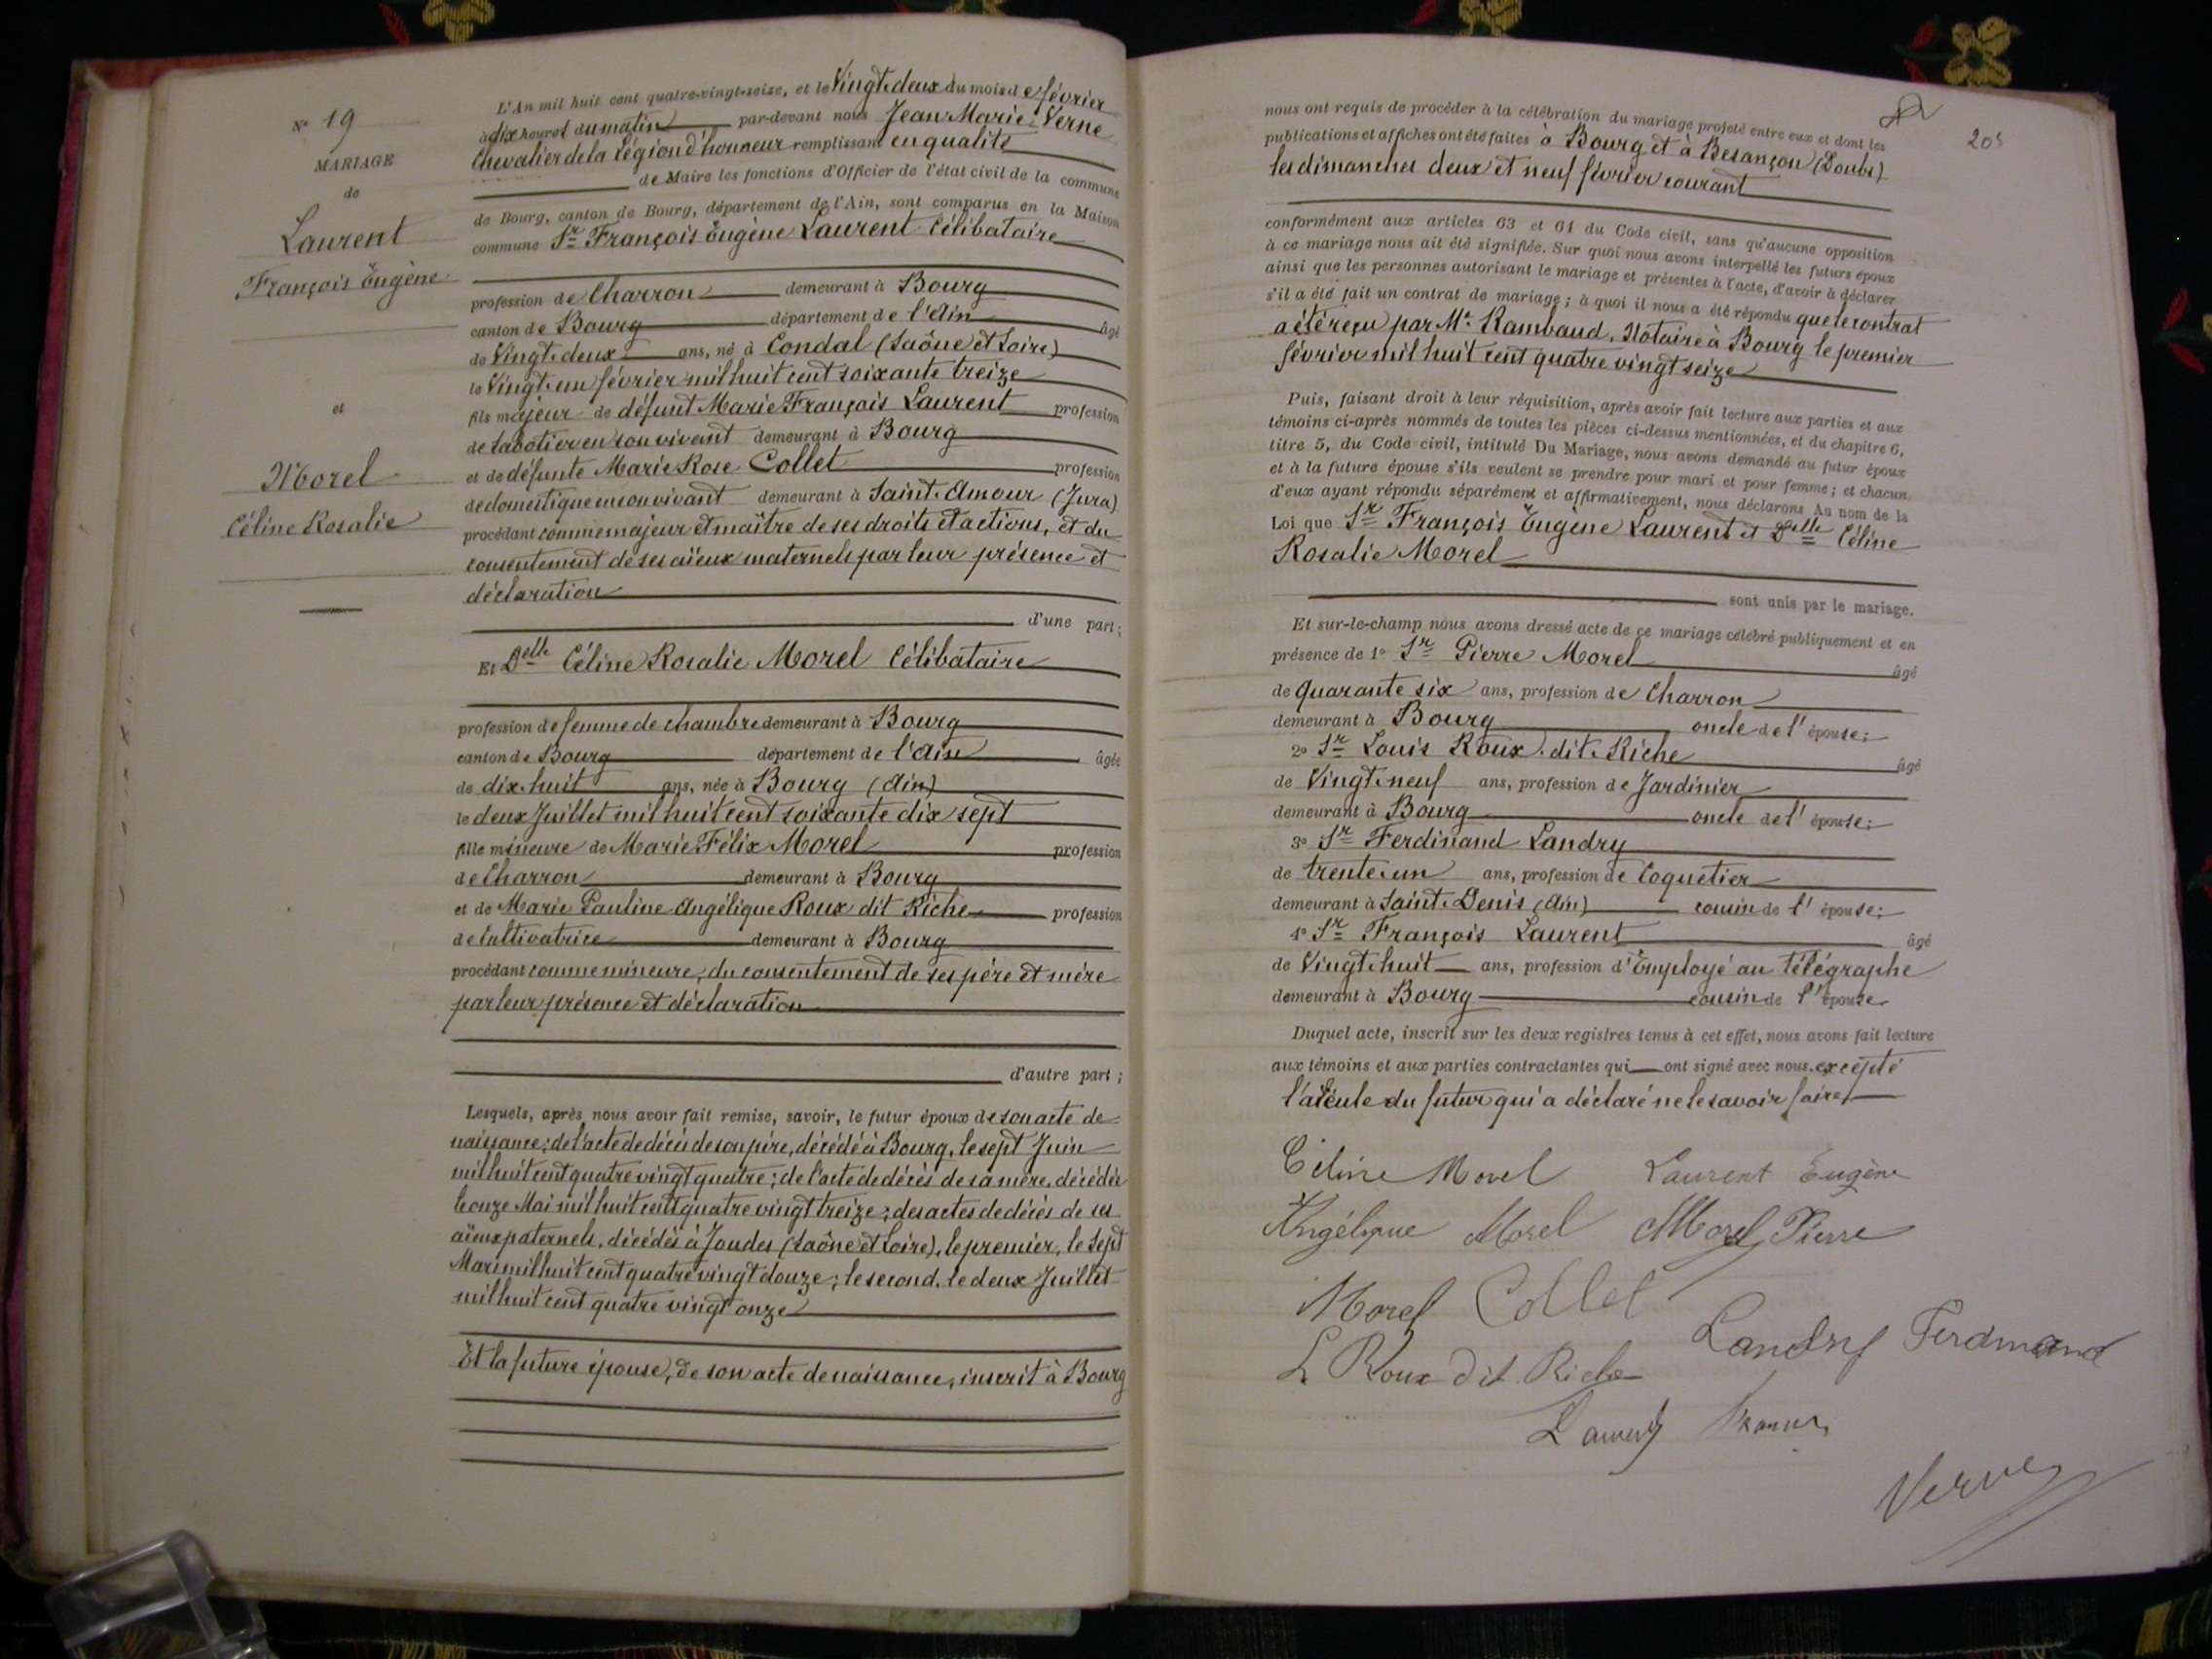 N° 19
MARIAGE
de
Laurent
François Eugène
et
Morel
Céline Rosalie
L'An mil huit cent quatre-vingt-seize, et le Vingt-deux du mois de février
à dix heures du matin par-devant nous Jean Marie Verne
Chevalier de la Légion d'honneur remplissant en qualité
de Maire les fonctions d'Officier de l'état civil de la commune
de Bourg, canton de Bourg, département de l'Ain, sont comparus en la Maison
commune Sr François Eugène Laurent Célibataire
profession de Charron demeurant à Bourg
canton de Bourg département de l'Ain âgé
de Vingt-deux ans, né à Condal (Saône et Loire)
le Vingt-un février mil huit cent soixante treize
fils majeur de défunt Marie François Laurent profession
de Sabotier en son vivant demeurant à Bourg
et de défunte Marie Rose Collet profession
de domestique en son vivant demeurant à Saint-Amour (Jura)
procédant comme majeur et maître de ses droits et actions, et du
consentement de ses aïeux maternels par leur présence et
déclaration
d'une part;
Et Delle Céline Rosalie Morel Célibataire
profession de femme de chambre demeurant à Bourg
canton de Bourg département de l'Ain âgée
de dix-huit ans, née à Bourg (Ain)
le deux Juillet mil huit cent soixante dix sept
fille mineure de Marie Félix Morel profession
de Charron demeurant à Bourg
et de Marie Pauline Angélique Roux dit Riche profession
de Cultivatrice demeurant à Bourg
procédant comme mineure, du consentement de ses père et mère
par leur présence et déclaration
d'autre part;
Lesquels, après nous avoir fait remise, savoir, le futur époux de son acte de
naissance; de l'acte de décès de son père, décédé à Bourg, le sept Juin
mil huit cent quatre vingt quatre; de l'acte de décès de sa mère, décédée
le onze Mai mil huit cent quatre vingt treize; des actes de décès de ses
aïeux paternels, décédés à Joudes (Saône et Loire), le premier, le Sept
Mars mil huit cent quatre vingt douze; le second, le deux Juillet
mil huit cent quatre vingt onze
Et la future épouse, de son acte de naissance, inscrit à Bourg
205
nous ont requis de procéder à la célébration du mariage projeté entre eux et dont les
publications et affiches ont été faites à Bourg et à Besançon (Doubs)
les dimanches deux et neuf février courant
conformément aux articles 63 et 64 du Code civil, sans qu'aucune opposition
à ce mariage nous ait été signifiée. Sur quoi nous avons interpellé les futurs époux
ainsi que les personnes autorisant le mariage et présentes à l'acte, d'avoir à déclarer
s'il a été fait un contrat de mariage; à quoi il nous a été répondu que le contrat
a été reçu par Me Rambaud, Notaire à Bourg le premier
février mil huit cent quatre vingt seize
Puis, faisant droit à leur réquisition, après avoir fait lecture aux parties et aux
témoins ci-après nommés de toutes les pièces ci-dessus mentionnées, et du chapitre 6,
titre 5, du Code civil, intitulé Du Mariage, nous avons demandé au futur époux
et à la future épouse s'ils veulent se prendre pour mari et pour femme; et chacun
d'eux ayant répondu séparément et affirmativement, nous déclarons Au nom de la
Loi que Sr François Eugène Laurent et Delle Céline
Rosalie Morel
sont unis par le mariage.
Et sur-le-champ nous avons dressé acte de ce mariage célébré publiquement et en
présence de 1° Sr Pierre Morel âgé
de quarante six ans, profession de Charron
demeurant à Bourg oncle de l'épouse;
2° Sr Louis Roux dit Riche âgé
de Vingt-neuf ans, profession de Jardinier
demeurant à Bourg oncle de l'épouse;
3° Sr Ferdinand Landry
de trente-un ans, profession de Coquetier
demeurant à Saint-Denis (Ain) cousin de l'épouse;
4° Sr François Laurent âgé
de Vingt-huit ans, profession d'Employé au télégraphe
demeurant à Bourg cousin de l'épouse
Duquel acte, inscrit sur les deux registres tenus à cet effet, nous avons fait lecture
aux témoins et aux parties contractantes qui ont signé avec nous, excepté
l'aïeule du futur qui a déclaré ne le savoir faire
Céline Morel Laurent Eugène
Angélique Morel Morel Pierre
Morel Collet
L Roux dit Riche Landry Ferdinand
Laurent
Verne